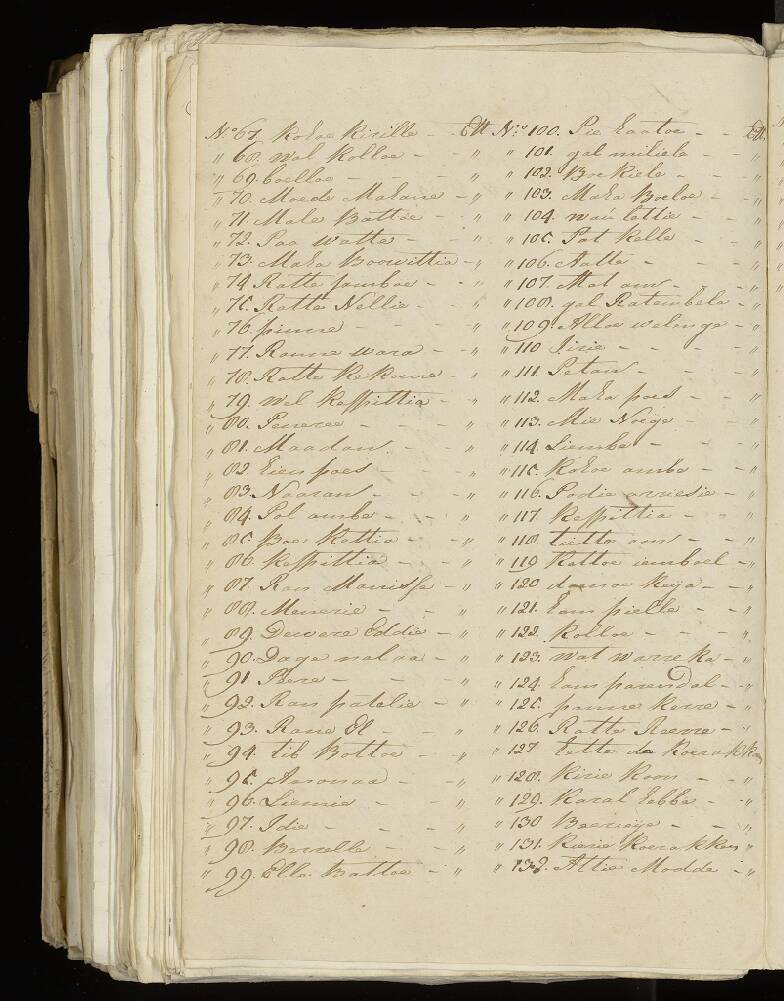 No 67. Kokoe Kirille - -
" 68. wal Kolloe - - "
" 69. boelloe - - - "
" 70. Moede Makane - "
" 71. Male Battoe - - "
" 72. Paa watte - - "
" 73. Maha Boowittia - "
" 74 Ratte jamboe - - "
" 75. Ratte Nellie - - "
" 76. pinne - - - "
" 77. Ranne wara - - "
" 78. Ratte Kekune - "
" 79. wel Keppittia - "
" 80. Peneree - - - "
" 81. Maadan - - - "
" 82. Eien poes - - - "
" 83. Naaran - - - "
" 84. Pol ambe - - - "
" 85. Boe Kattia - - "
" 86. Keppittia - - - "
" 87. Ran Manisse - "
" 88. Menerie - - - "
" 89. Dewere Eddie - "
" 90. Dage nal aa - "
" 91 Pere - - - "
" 92. Ran patalie - - "
" 93. Rane El - - "
" 94. tib Bottoe - - "
" 95. Anonaa - - "
" 96. Liemie - - "
" 97. Idie - - - "
" 98. Brxelle - - "
" 99. Elle. Battoe - "
No 100. Pie Laatoe - -
" 101. gal miliela - - "
" 102. Boekiele - - "
" 103. Maha Boeloe - "
" 104. wau lattie - "
" 105. Pat Kelle - - "
" 106. Aatte - - - "
" 107. Mal aun - - "
" 108. gal Ratembela - "
" 109. Alloe welenge - "
" 110 Jirie - - - "
" 111 Petan - - - "
" 112. Maha poes - - "
" 113. Mie Noege - - "
" 114. Liembe - - - "
" 115. Kokoe ambe - "
" 116. Podie arriedie - "
" 117. Keppittia - - "
" 118. tietto aun - - "
" 119 Kattoe iemboel - "
" 120 danoe Keya - - "
" 121. Eam pielle - - "
" 122. Kolloe - - - "
" 123. wat warre ka - "
" 124. Eam parendal - "
" 125. panne Kerre - "
" 126. Ratte Neerre - "
" 127 tette da Koerakka
" 128. Kirie Koon - - "
" 129. Karal Eebbe - "
" 130 Beerieye - - "
" 131. Kierie Koerakken "
" 132. Attie Modde - "